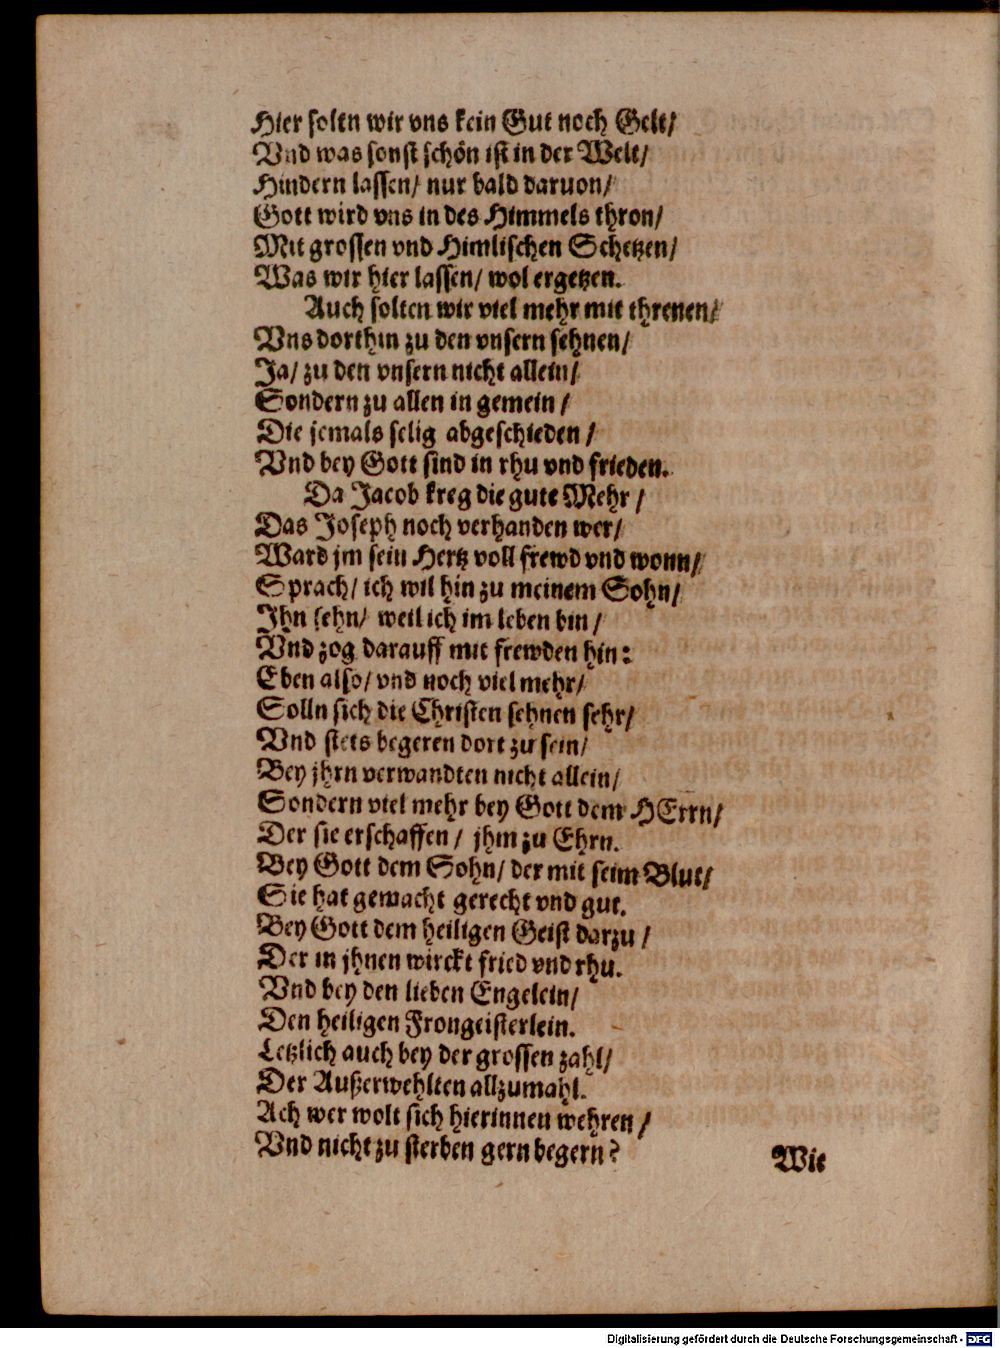 Hier soltn wir vns kein Gut noch Gelt/
Vnd was sonst schön ist in der Welt/
Hindern lassen/ nur bald daruon/
Gott wird vns in des Himmels thron/
Mit grossen vnd Himlischen Schetzen/
Was wir hier lassen/ wol ergetzen.
Auch solten wir viel mehr mit threnen/
Vns dorthin zu den vnsern sehnen/
Ja/ zu den vnsern nicht allein/
Sondern zu allen in gemein/
Die jemals selig abgeschieden/
Vnd bey Gott sind in rhu vnd frieden.
Da Jacob kreg die gute Mehr/
Das Joseph noch verhanden wer/
Ward jm sein Hertz voll frewd vnd wonn/
Sprach/ ich wil hin zu meinem Sohn/
Ihn sehn/ weil ich im leben bin/
Vnd zog darauff mit frewden hin:
Eben also/ vnd noch viel mehr/
Solln sich die Christen sehnen sehr/
Vnd stets begeren dort zu sein/
Bey jhrn verwandten nicht allein/
Sondern viel mehr bey Gott dem HErrn/
Der sie erschaffen/ jhm zu Ehrn.
Bey Gott dem Sohn/ der mit seim Blut/
Sie hat gemacht gerecht vnd gut.
Bey Gott dem heiligen Geist darzu/
Der in jhnen wirckt fried vnd rhu.
Vnd bey den lieben Engelein/
Den heiligen Frongeisterlein.
Letzlich auch bey der grossen zahl/
Der Außerwehlten allzumahl.
Ach wer wolt sich hierinnen wehren/
Vnd nicht zu sterben gern begern?
Wie
Digitalisierung gefördert durch die Deutsche Forschungsgemeinschaft - DFG